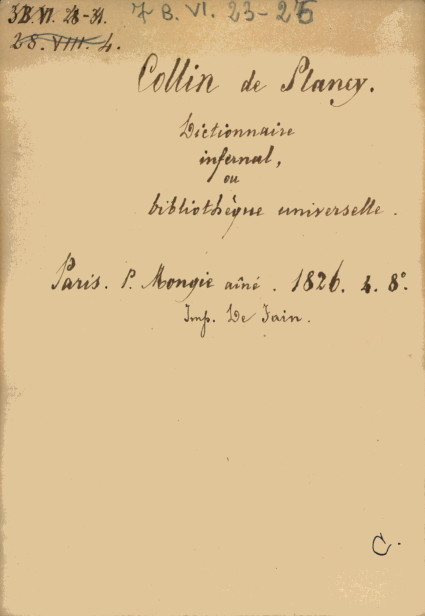 3B. VI. 28-31.
7 B. VI. 23-25
28. VIII. 4.
Collin de Plancy.
Dictionnaire
infernal,
ou
bibliothèque universelle.
Paris. P. Mongie aîné. 1826. 4. 8°.
Imp. De Fain.
C.